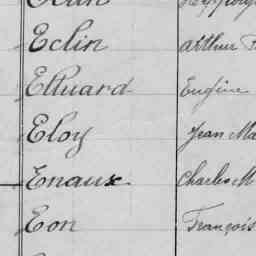 Eclin Arthur
Elluard Eugène
Eloy Jean Ma
Enaux Charles M
Eon François